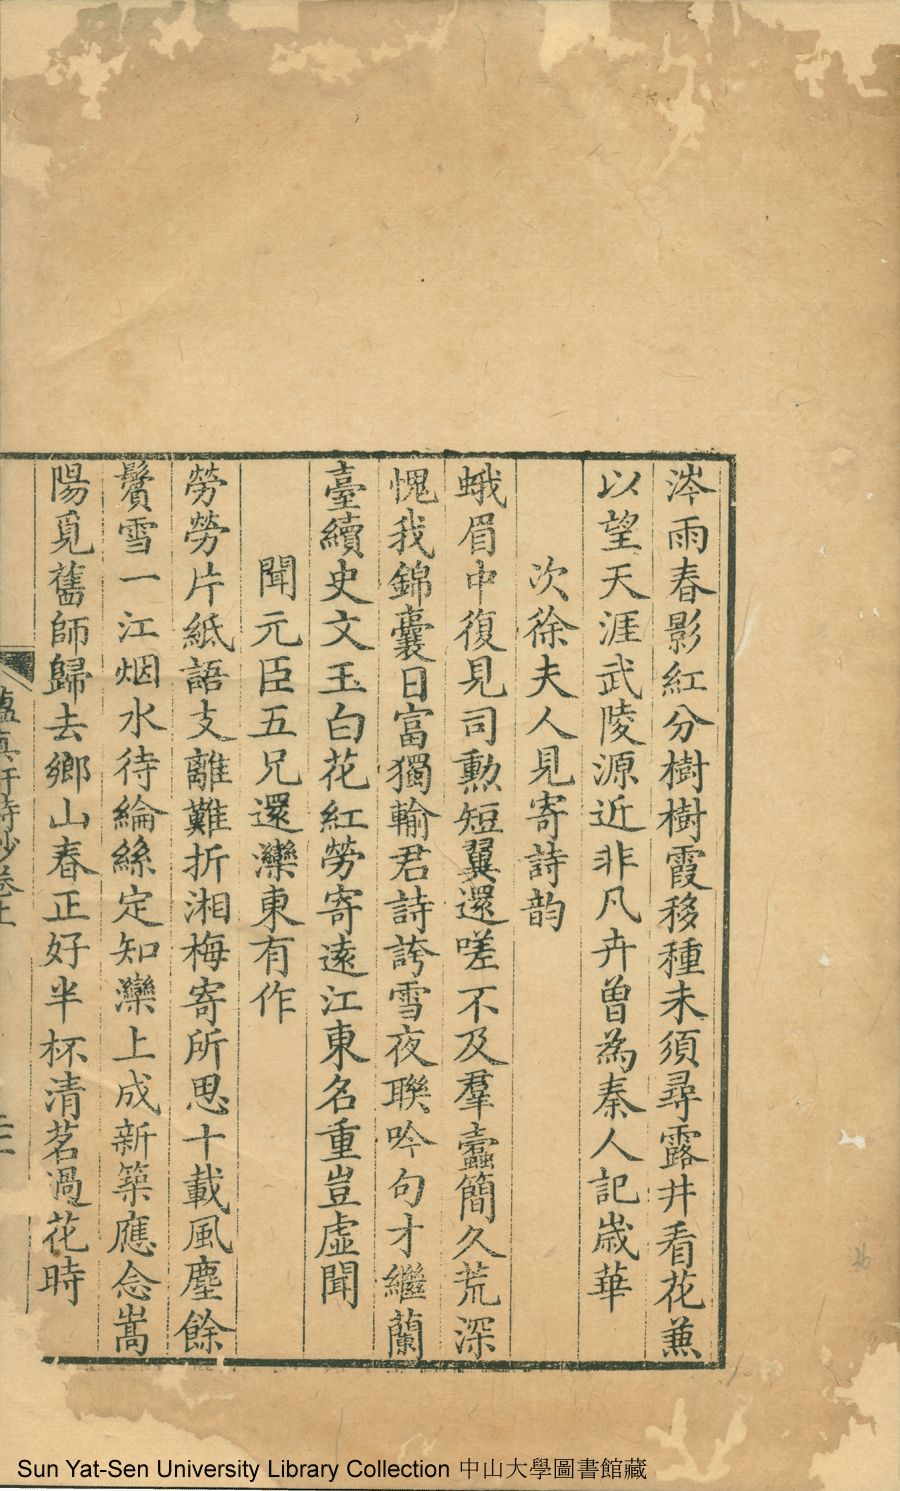 涔雨春影紅分樹樹霞移種未須尋露井看花兼
以望天涯武陵源近非凡卉曾為秦人記歲華
次徐夫人見寄詩韵
蛾眉中復見司勲短翼還嗟不及羣蠹簡久荒深
愧我錦囊日富獨輸君詩誇雪夜聯吟句才繼蘭
臺續史文玉白花紅勞寄遠江東名重豈虛聞
聞元臣五兄還灤東有作
勞勞片紙語支離難折湘梅寄所思十載風塵餘
鬢雪一江烟水待綸絲定知灤上成新築應念嵩
陽覓舊師歸去鄉山春正好半杯清茗過花時
詩鈔卷上
Sun Yat-Sen University Library Collection 中山大學圖書館藏